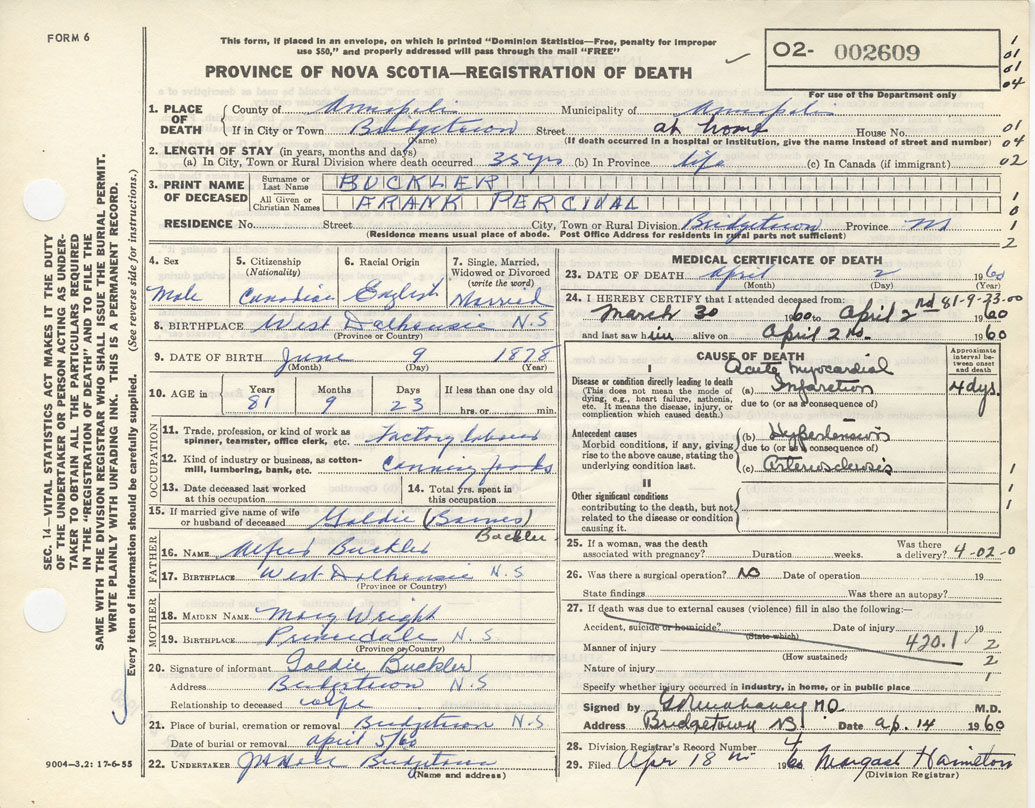 FORM 6
This form, if placed in an envelope, on which is printed "Dominion Statistics—Free, penalty for improper
use $50," and properly addressed will pass through the mail "FREE"
O2- 002609
For use of the Department only
PROVINCE OF NOVA SCOTIA—REGISTRATION OF DEATH
1. PLACE OF DEATH County of Annapolis Municipality of Annapolis
If in City or Town Bridgetown Street at home House No.
(Name) (If death occurred in a hospital or institution, give the name instead of street and number)
2. LENGTH OF STAY (in years, months and days)
(a) In City, Town or Rural Division where death occurred 35 yrs (b) In Province life (c) In Canada (if immigrant)
3. PRINT NAME OF DECEASED Surname or Last Name BUCKLER
All Given or Christian Names FRANK PERCIVAL
RESIDENCE No. Street City, Town or Rural Division Bridgetown Province NS
(Residence means usual place of abode. Post Office Address for residents in rural parts not sufficient)
4. Sex Male
5. Citizenship (Nationality) Canadian
6. Racial Origin English
7. Single, Married, Widowed or Divorced (write the word) Married
8. BIRTHPLACE West Dalhousie N.S
(Province or Country)
9. DATE OF BIRTH June 9 1878
(Month) (Day) (Year)
10. AGE in Years 81 Months 9 Days 23 If less than one day old hrs. or min.
OCCUPATION
11. Trade, profession, or kind of work as spinner, teamster, office clerk, etc. Factory labourer
12. Kind of industry or business, as cotton-mill, lumbering, bank, etc. Canning foods
13. Date deceased last worked at this occupation
14. Total yrs. spent in this occupation
15. If married give name of wife or husband of deceased Goldie (Barnes) Buckler
FATHER
16. NAME Alfred Buckler
17. BIRTHPLACE West Dalhousie N.S
(Province or Country)
MOTHER
18. MAIDEN NAME Mary Wright
19. BIRTHPLACE Princedale N.S.
(Province or Country)
20. Signature of informant Goldie Buckler
Address Bridgetown N.S
Relationship to deceased wife
21. Place of burial, cremation or removal Bridgetown N.S
Date of burial or removal April 5/60
22. UNDERTAKER Bridgetown
(Name and address)
MEDICAL CERTIFICATE OF DEATH
23. DATE OF DEATH April 2 1960
(Month) (Day) (Year)
24. I HEREBY CERTIFY that I attended deceased from: 81-9-23-00
March 30 1960 to April 2nd 1960
and last saw him alive on April 2nd. 1960
CAUSE OF DEATH
Approximate interval between onset and death
I
Disease or condition directly leading to death
(This does not mean the mode of dying, e.g., heart failure, asthenia, etc. It means the disease, injury, or complication which caused death.)
(a) Acute Myocardial Infarction 4 dys.
due to (or as a consequence of)
Antecedent causes
Morbid conditions, if any, giving rise to the above cause, stating the underlying condition last.
(b) Hypertension
due to (or as a consequence of)
(c) Arteriosclerosis
II
Other significant conditions
contributing to the death, but not related to the disease or condition causing it.
25. If a woman, was the death associated with pregnancy? Duration weeks. Was there a delivery? 4-02-0
26. Was there a surgical operation? NO Date of operation 19
State findings Was there an autopsy?
27. If death was due to external causes (violence) fill in also the following:—
Accident, suicide or homicide? Date of injury 19
(State which)
Manner of injury 420.1
(How sustained)
Nature of injury
Specify whether injury occurred in industry, in home, or in public place
Signed by M.D. M.D.
Address Bridgetown NS Date Ap. 14 1960
28. Division Registrar's Record Number 4
29. Filed Apr 18 1960 Margaret Hamilton
(Division Registrar)
SEC. 14—VITAL STATISTICS ACT MAKES IT THE DUTY
OF THE UNDERTAKER OR PERSON ACTING AS UNDER-
TAKER TO OBTAIN ALL THE PARTICULARS REQUIRED
IN THE "REGISTRATION OF DEATH" AND TO FILE THE
SAME WITH THE DIVISION REGISTRAR WHO SHALL ISSUE THE BURIAL PERMIT.
WRITE PLAINLY WITH UNFADING INK. THIS IS A PERMANENT RECORD.
Every item of information should be carefully supplied. (See reverse side for instructions.)
9004—3.2: 17-6-55